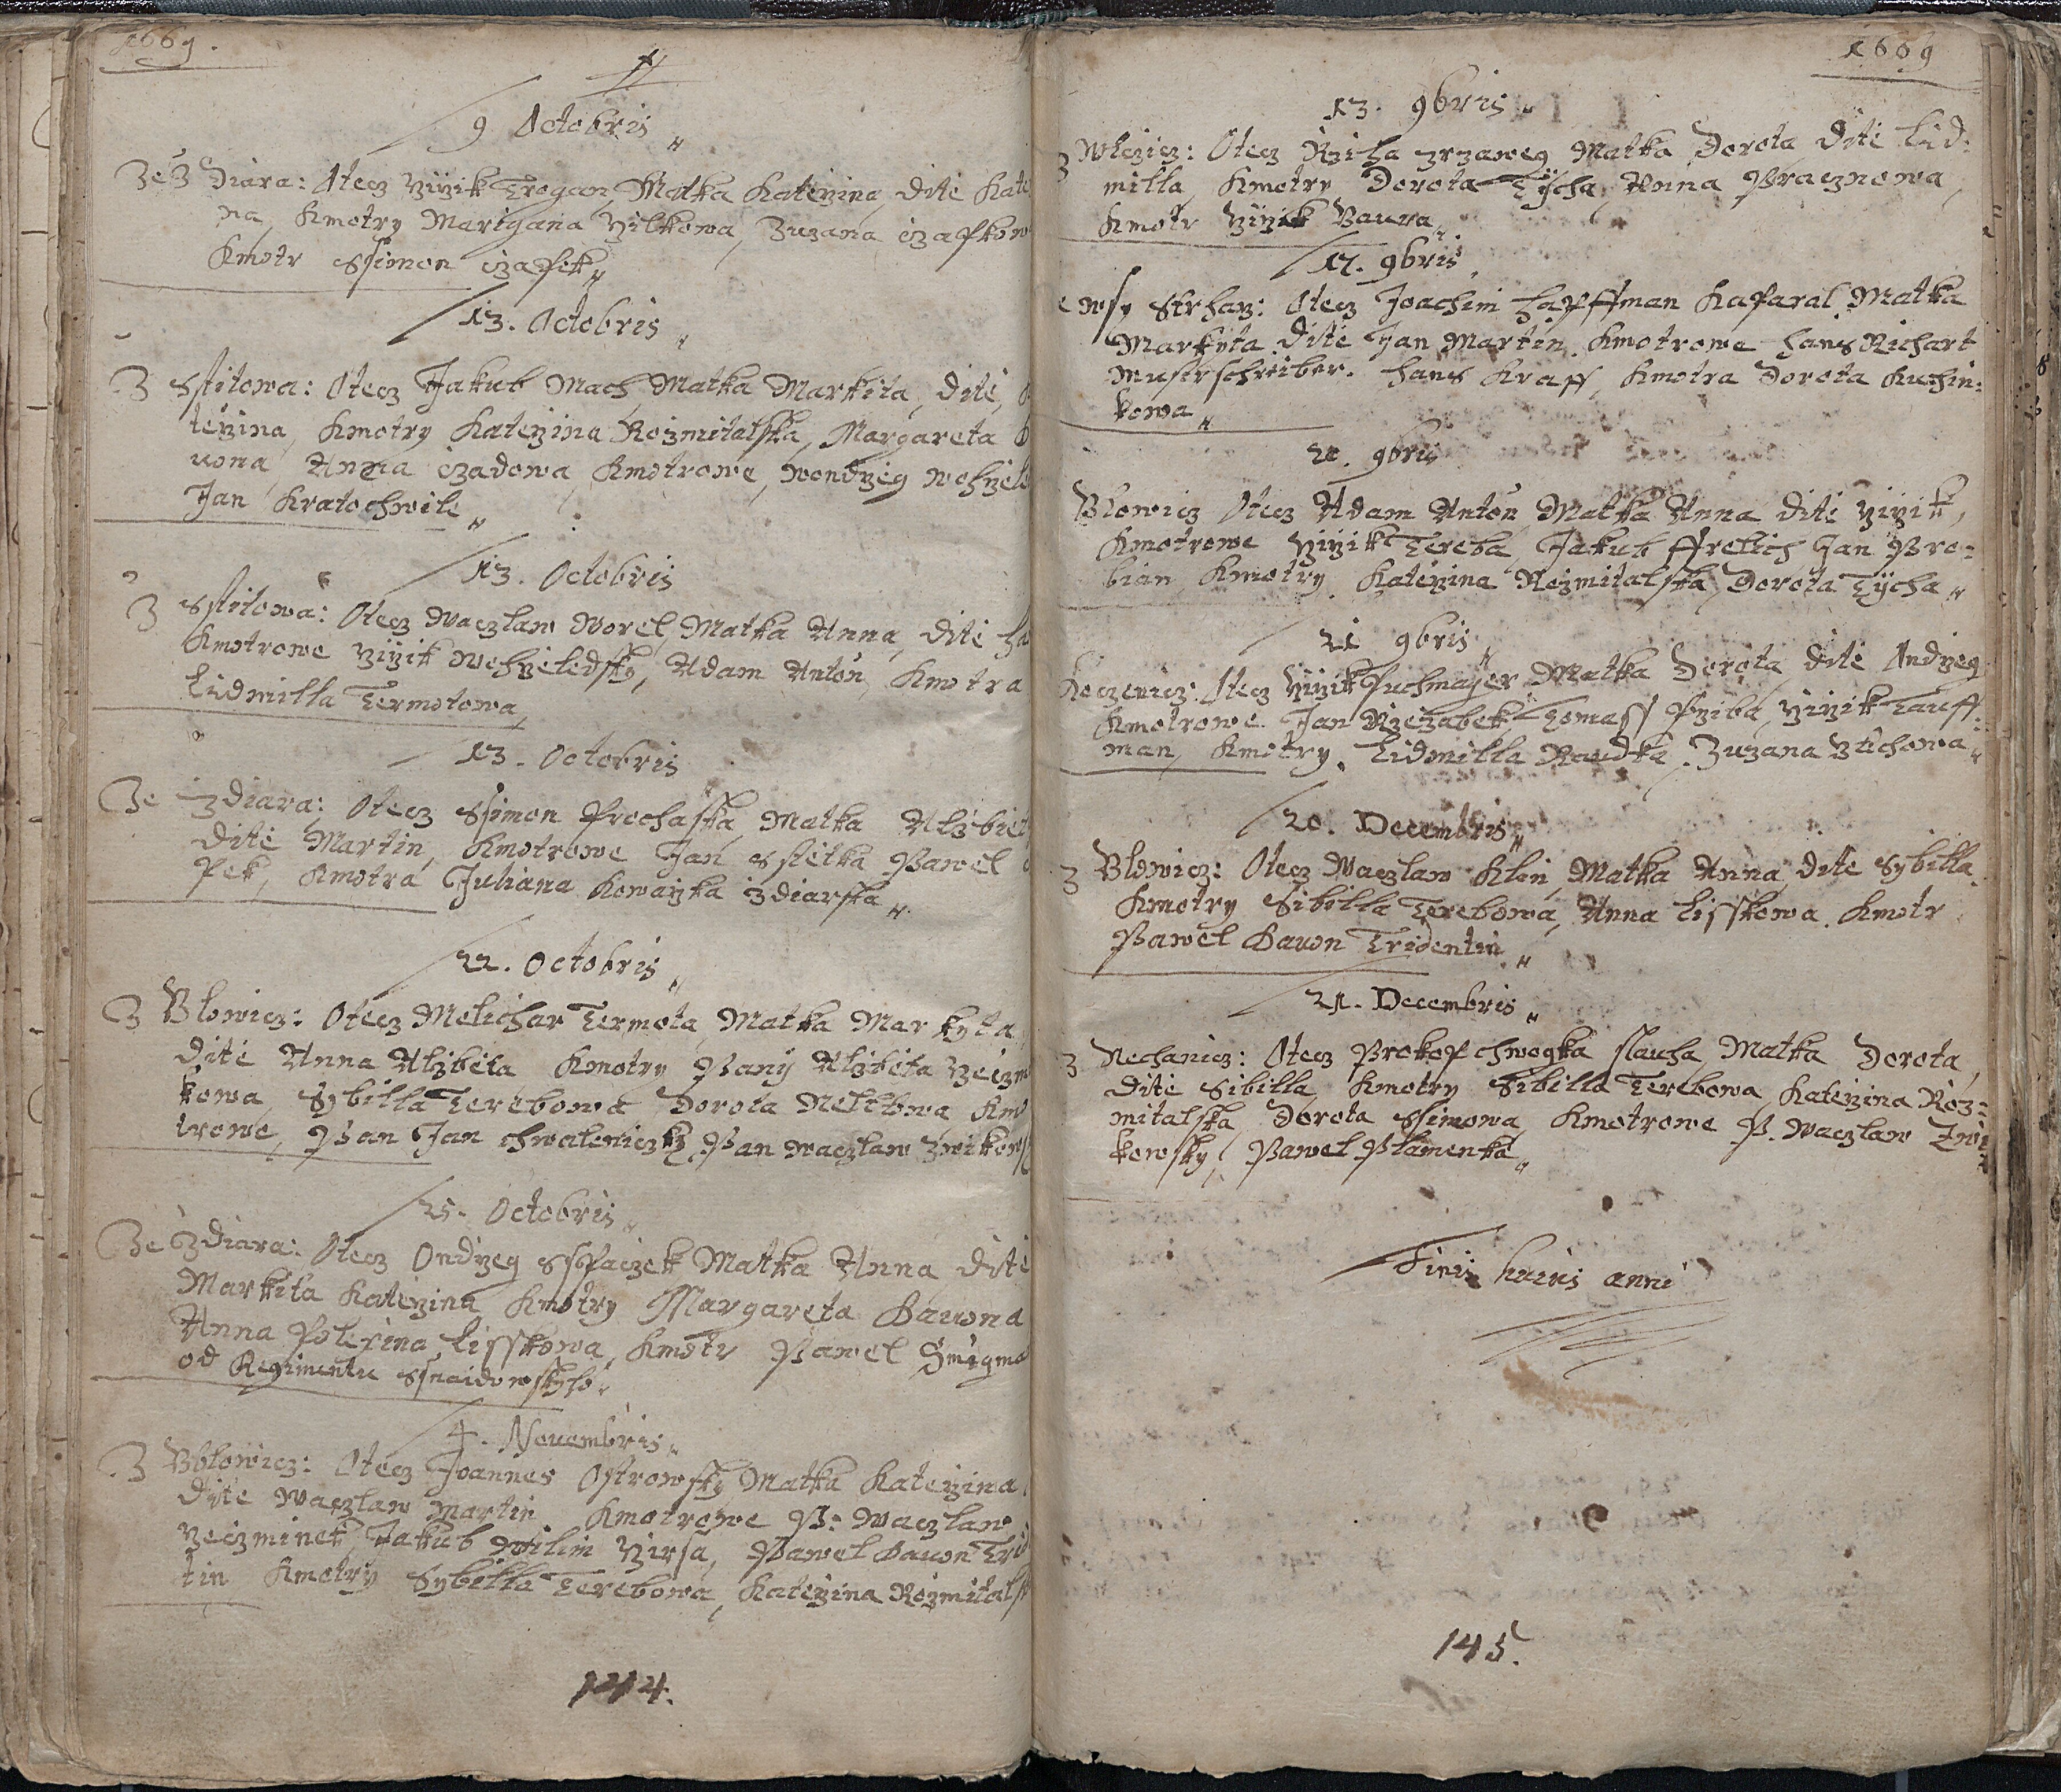 1669.
9 Octobris
Ze Zdiara: Otecz Yiržik Trogan, Matka Kateržina, dite Kate
na, Kmotry Marigana Yilkowa, Zuzana czapkow
Kmotr Ssimon czapek
13. Octobris
Z Sstitowa: Otecz Jakub Mach, Matka Markita, dite,
teržina, Kmotry Kateržina Rozmitalska, Margareta
uona, Anna czadowa, Kmotrowe, wondržeg wohržele
Jan Kratochwile
13. Octobris
Z Sstitowa: Otecz Waczlaw Worel, Matka Anna, dite
Kmotrowe Yiržik Wohrželedsky, Adam Anton, Kmotra
Lidmilla Termotowa
13. Octobris
Ze Zdiara: Otecz Ssimon Prochaska, Matka Alžbiet
dite Martin, Kmotrowe Jan Sstetka, Pawel
pek, Kmotra Juliana Kowaržka zdiarska
22. Octobris
Z Blowicz: Otecz Melichar Termota, Matka Markyta
dite Anna Alžbieta Kmotry Pany Alžbieta
kowa, Sybilla Terebowa Dorota Kmo
trowe, Pan Jan chwaleniczky, Pan waczlaw Zwikows
25. Octobris
Ze Zdiara: Otecz Ondržeg Sspaczek Matka Anna, dite
Markita Kateržina Kmotry Margareta Bauona
Anna Polexina Lisskowa, Kmotr Pawel
od Regimentu Ssnaidowskyho
4. Novembris
Z Blowicz: Otecz Joannes Ostrowsky Matka Kateržina
dite Waczlaw Martin Kmotrowe P: Waczlaw
Jakub Wilim Pawel Bauon Trid
tin Kmotry Sybilla Terebowa, Kateržina Rozmitals
144.
1669
13. 9bris
Z Wlczicz: Otecz Ržiha zržaweg Matka Dorota dite Lid:
milla, Kmotry Dorota Tÿcha, Anna Pracznowa,
Kmotr Yiržik Baura
17. 9bris
wsy Strhaz: Otecz Joachim Hapffman Kaparal Matka
Markyta dite Jan Martin. Kmotrowe Hans Richart
Musterschreiber. Hans Kraff, Kmotra Dorota Kuchin:
kowa
20. 9bris
Blowicz Otecz Adam Anton Matka Anna dite Yiržik,
Kmotrowe Yiržik Tereba, Jakub Frelich Jan Bro:
bian Kmotry Kateržina Rozmitalska, Dorota Tÿcha
21 9bris
Otecz Yiržik Puchmajer Matka Dorota dite Ondržeg
Kmotrowe Jan Ržeržabek, Tomass Pržiba, Yiržik Tauff:
man, Kmotry, Lidmilla Raudka, Zuzana
20. Decembris
Z Blowicz: Otecz Waczlaw Klin, Matka Anna, dite Sybilla.
Kmotry Sibilla Terebowa, Anna Lisskowa. Kmotr
Pawel Bauon Tridentin
21. Decembris
Z Nechanicz: Otecz Prokop chwogka slauha Matka Dorota,
dite Sibilla, Kmotry Sibilla Terebowa, Kateržina Roz:
mitalska, Dorota Ssimowa, Kmotrowe P. Waczlaw Zwi
kowsky, Pawel Plamenka
Finis huius anni
145.